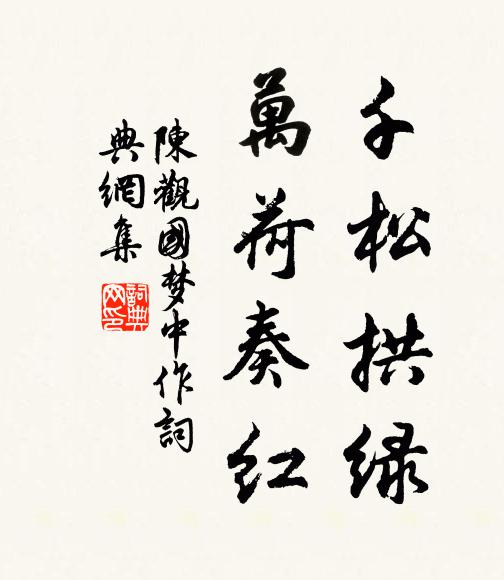 千松拱绿
萬荷奏红
陳觀國梦中作詞
典網集
詞典
网印